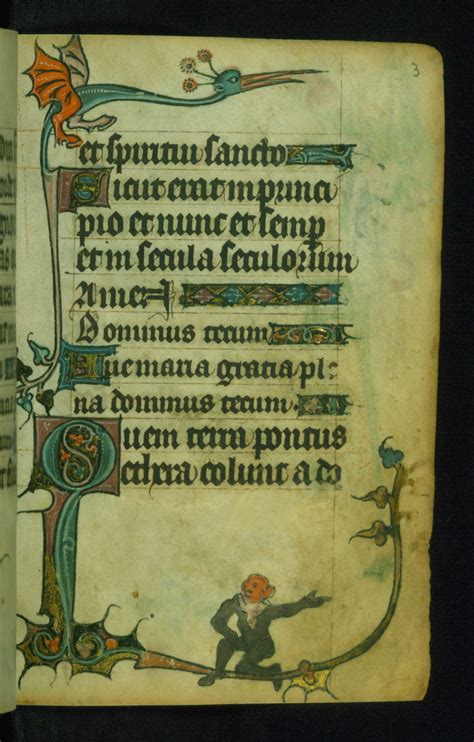 3
et spiritui sancto
Sicut erat in princi
pio et nunc et semp
et in secula seculorum
Amen
Dominus tecum
Aue maria gracia ple
na dominus tecum
Quem terra pontus
ethera colunt ado